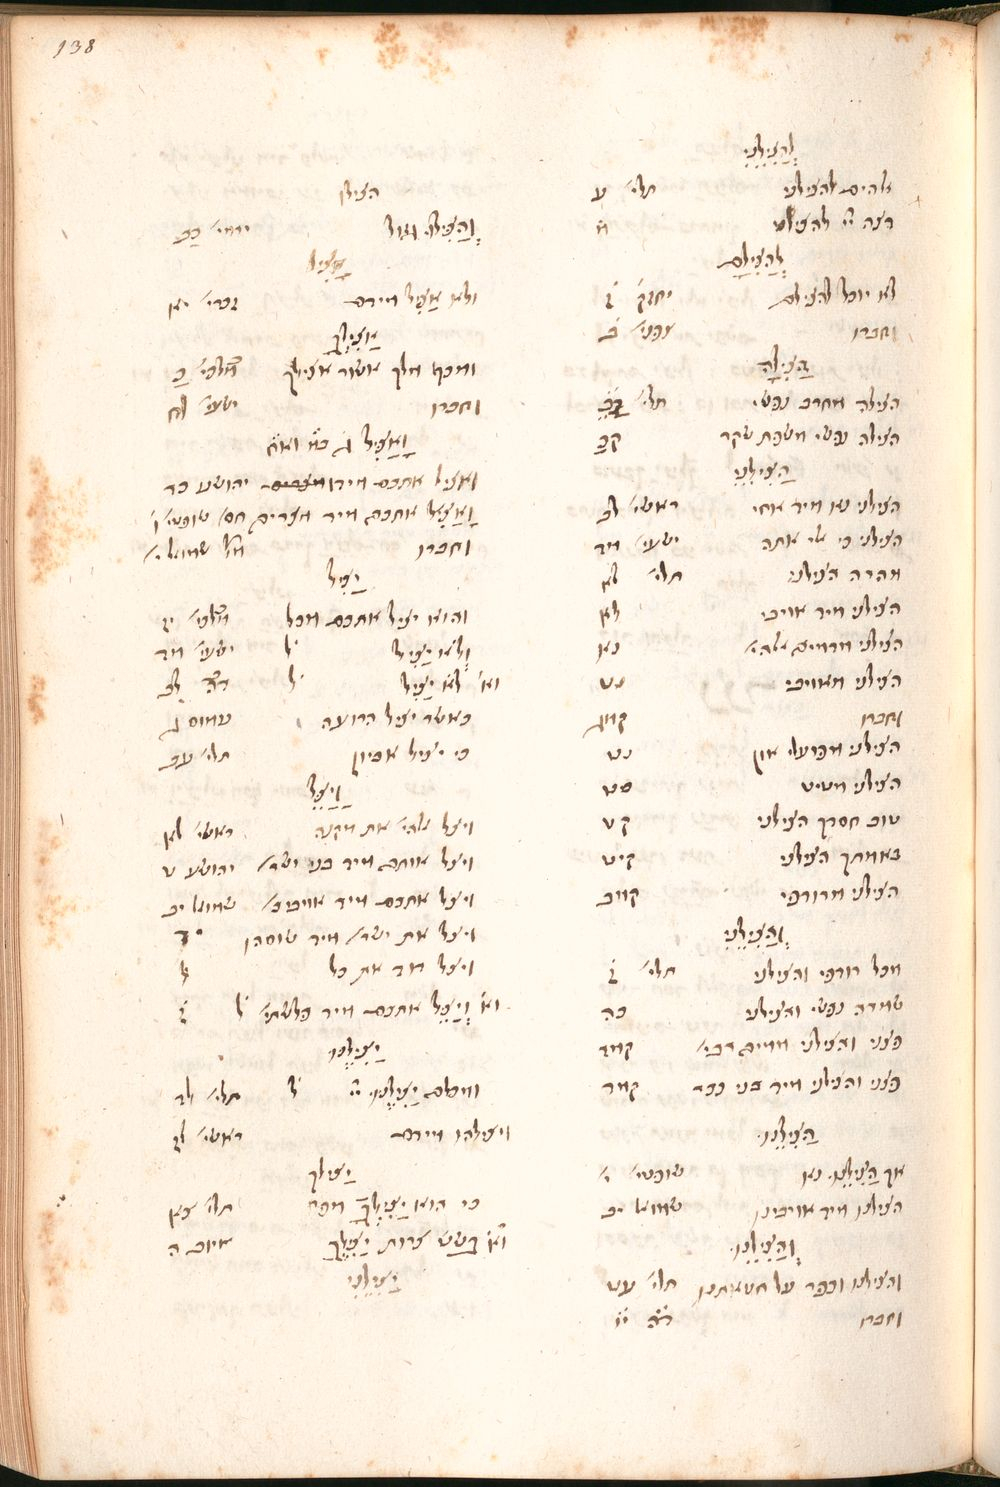 138
לְהַצִּילֵנִי
אלהים להצילני תלי׳ ע
רצה יי להצילני מ
לְהַצִּילָם
לא יוכל להצילם יחזק׳ ז
וחברו צפני׳ א
הַצִּילָה
הצילה מחרב נפשי תלי׳ כב
הצילה נפשי משפת שקר קכ
הַצִּילֵנִי
הצילני נא מיד אחי ראשי׳ לב
הצילני כי אלי אתה ישעי׳ מד
מהרה הצילני תלי׳ לא
הצילני מיד אויבי לא
הצילני מדמים אלהי׳ נא
הצילני מאויבי נט
וחברו קמג
הצילני מפועלי און נט
הצילני מטיט סט
טוב חסדך הצילני קט
כאמרתך הצילני קיט
הצילני מרודפי קמב
וְהַצִּילֵנִי
מכל רודפי והצילני תלי׳ ז
שמרה נפשי והצילני כה
פצני והצילני ממים רבי׳ קמד
פצני והצילני מיד בני נכר קמד
הַצִּילֵנוּ
אך הַצִּילֵנוּ נא שופטי׳ י
הצילנו מיד אויבינו שמואל יב
וְהַצִּילֵנוּ
והצילנו וכפר על חטאתנו תלי׳ עט
וחברו
הצילו
וְהַצִּילוּ גזול ירמי׳ כב
אַצִּיל
ולא אַצִּיל מידם זכרי׳ יא
אַצִּילְךָ
ומכף מלך אשור אצילך מלכי׳ כ
וחברו ישעי׳ לח
וָאַצִּיל
ואציל אתכם מידו יהושע כד
וָאַצִּל אתכם מיד מצרים חס׳ שופטי׳ ו
וחברו מל׳ שמואל י
יַצִּיל
והוא יציל אתכם מכל מלכי׳ יז
וְלֹא יַצִּיל ל׳ ישעי׳ מד
וא׳ לֹא יַצִּיל ל׳ לב
כאשר יציל הרועה עמוס ג
כי יציל אביון תלי׳ עב
וַיַּצֵּל
ויצל אלהי׳ את מקנה ראשי׳ לא
ויצל אותם מיד בני ישר׳ יהושע ט
ויצל אתכם מיד אויביכ׳ שמואל יב
ויצל את ישר׳ מיד שוסהו יד
ויצל דוד את כל ל
וא׳ וַיַּצֵּל אתכם מיד פלשתי׳ ל׳ ז
יַצִּילֶנּוּ
ומכלם יַצִּילֶנּוּ יי ל׳ תלי׳ לד
ויצילהו מידם ראשי׳ לז
יַצִּילך
כי הוא יַצִּילְךָ מפח תלי׳ צא
וא׳ בְּשֵׁשׁ צרות יַצִּילֶךָּ איוב ה
יַצִּילֵנִי